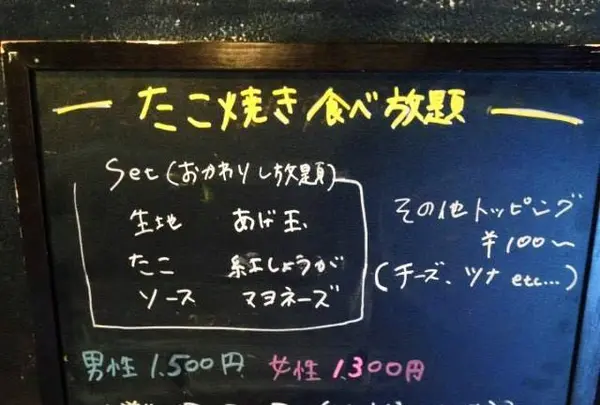 たこ焼き 食べ放題
Set (おかわりし放題)
生地 あげ玉
たこ 紅しょうが
ソース マヨネーズ
その他トッピング
¥100〜
(チーズ、ツナ etc...)
男性 1.500円 女性 1.300円